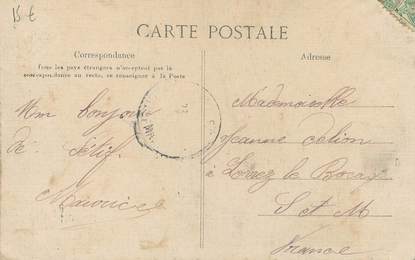 15 €
CARTE POSTALE
Correspondance
Tous les pays étrangers n'acceptent pas la
correspondance au recto, se renseigner à la Poste
Adresse
bonjour
de Sétif
Maurice
Mademoiselle
Jeanne
à
S et M
France